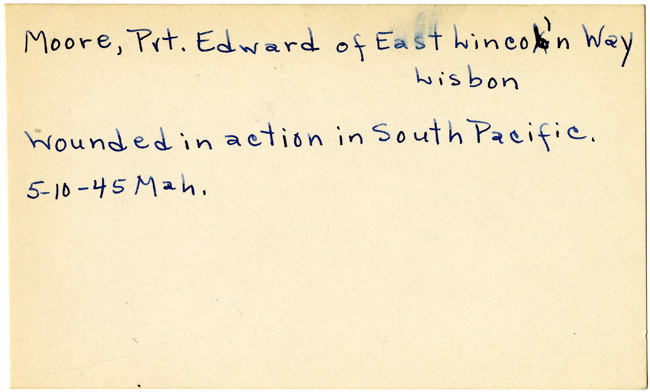 Moore, Pvt. Edward of East Lincoln Way
Lisbon
Wounded in action in South Pacific.
5-10-45 Mah.